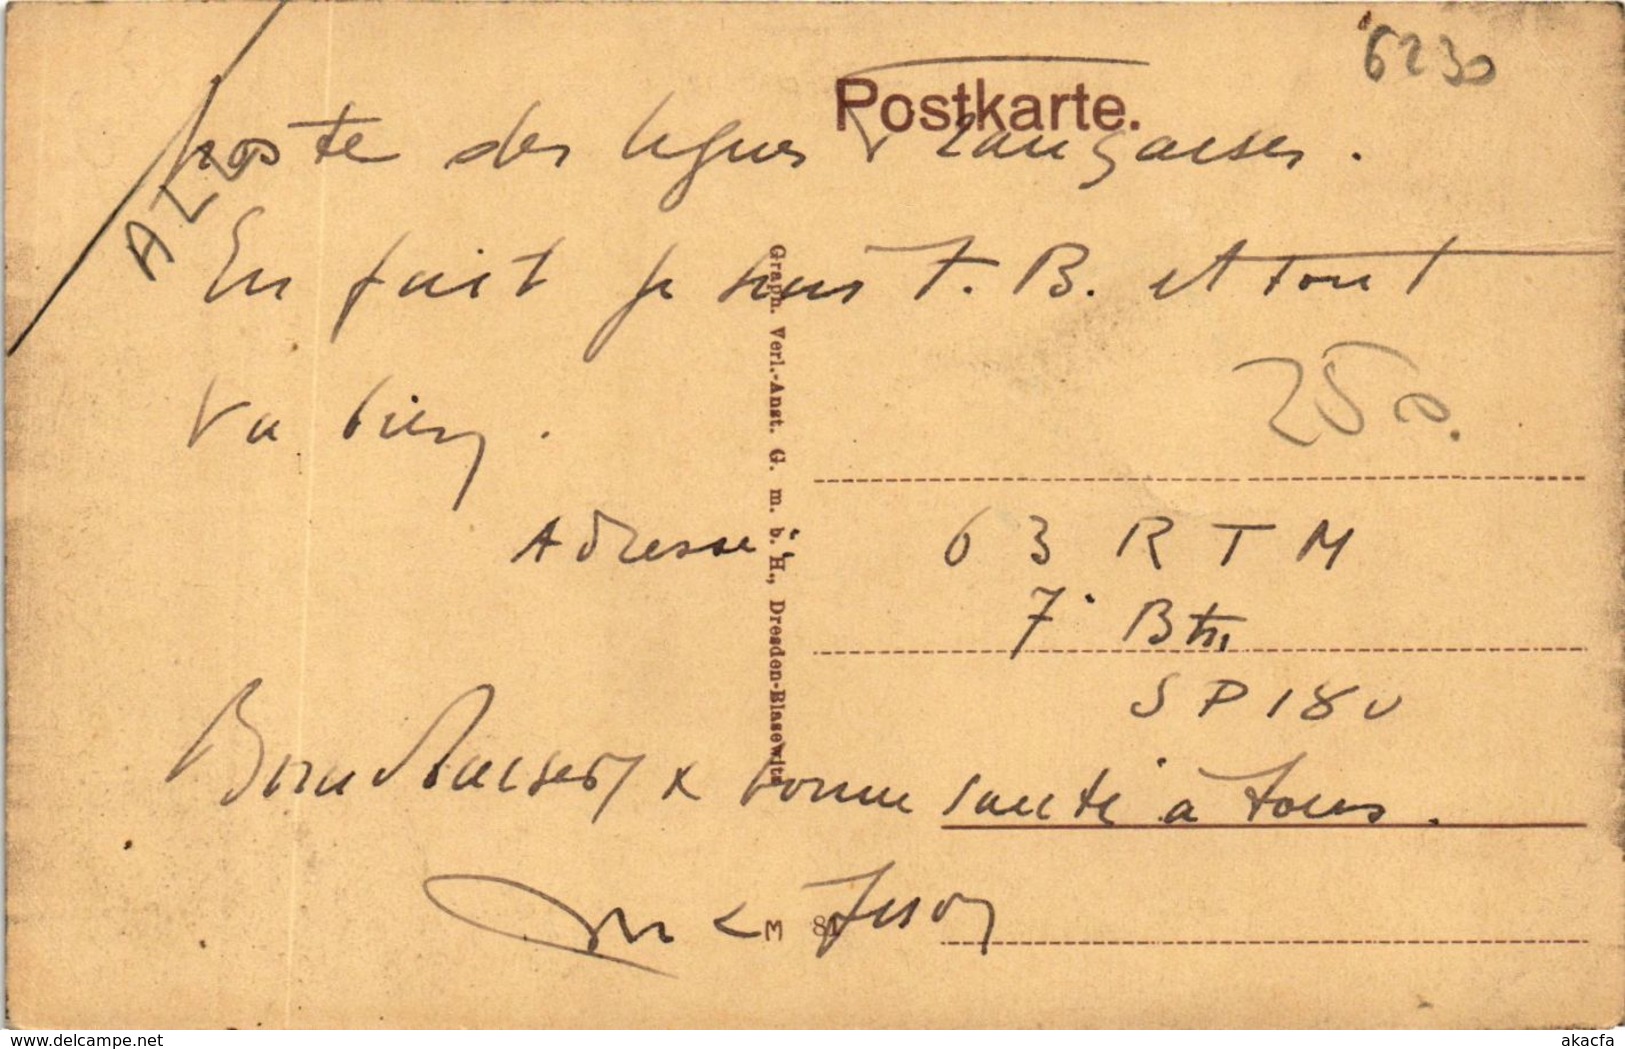 6230
Postkarte.
poste des lignes françaises.
ALL
En fait je suis T. B. et tout
250.
va bien.
Adresse :
63 RTM
7° Btn
SP 180
Bons baisers & bonne santé à tous.
M 81
Graph. Verl.-Anst. G. m. b. H., Dresden-Blasewitz
www.delcampe.net
akacfa